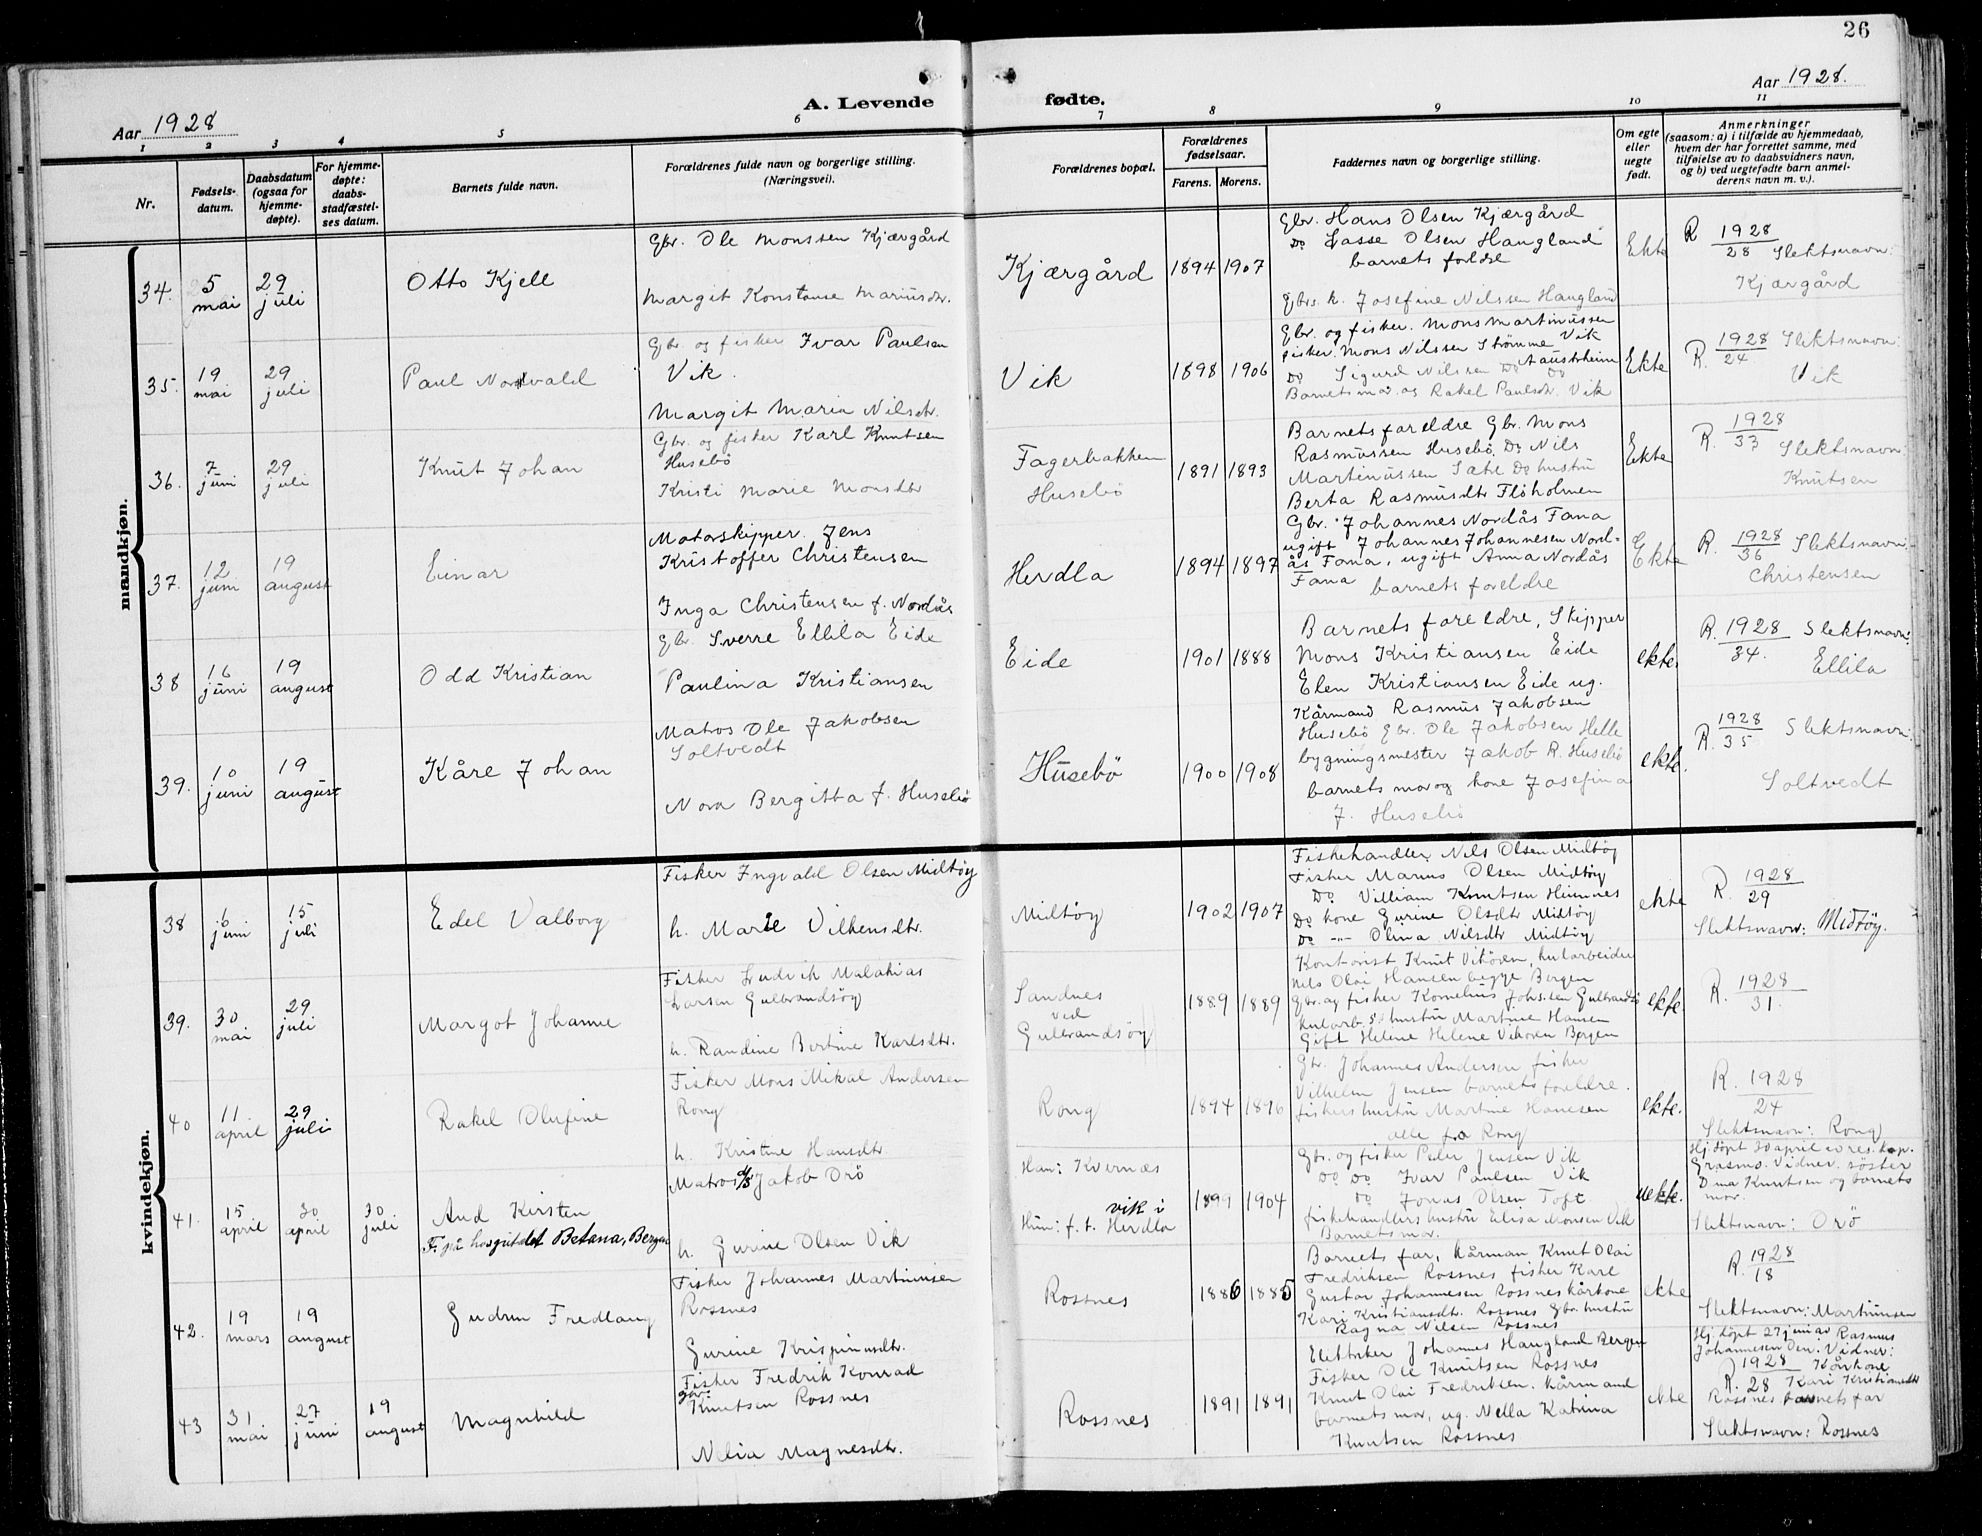 26
Aar 1928
A. Levende
fødte.
Aar 1928.
1 2 3 4 5 6 7 8 9 10 11
Nr.
Fødsels-
datum.
Daabsdatum
(ogsaa for
hjemme-
døpte).
For hjemme-
døpte:
daabs-
stadfæstel-
ses datum.
Barnets fulde navn.
Forældrenes fulde navn og borgerlige stilling.
(Næringsvei).
Forældrenes bopæl.
Forældrenes
fødselsaar.
Farens. Morens.
Faddernes navn og borgerlige stilling.
Om egte
eller
uegte
født.
Anmerkninger
(saasom: a) i tilfælde av hjemmedaab,
hvem der har forrettet samme, med
tilføielse av to daabsvidners navn,
og b) ved uegtefødte barn anmel-
derens navn m. v.).
mandkjøn.
34.
5
mai
29
juli
Otto Kjell
Gbr. Ole Monssen Kjærgård
Margit Konstanse Mariusdtr.
Kjærgård
1894 1907
Gbr. Hans Olsen Kjærgård
Do Lasse Olsen Haugland
barnets foreldre
Gbrs. k. Josefine Nilssen Haugland
Ekte
R 1928
28 Slektsnavn:
Kjærgård
35.
19
mai
29
juli
Paul Nordvald
Gbr. og fisker Ivar Paulsen
Vik.
Margit Maria Nilsdtr.
Vik
1898 1906
Gbr. og fisker. Mons Martinussen
fisker. Mons Nilssen Strømme Vik
Do Sigurd Nilssen Do Austrheim
Barnets mor og Rakel Paulsdtr. Vik
Ekte
R. 1928
24 Slektsnavn:
Vik
36.
7
juni
29
juli
Knut Johan
Gbr. og fisker Karl Knutsen
Husebö
Kristi Marie Monsdtr
Fagerbakken
Husebö
1891 1893
Barnets foreldre Gbr. Mons
Rasmussen Husebö, Do Nils
Martinussen Sæte Do hustru
Berta Rasmusdtr Flöholmen
Ekte
R. 1928
33
Slektsnavn:
Knutsen
37.
12
juni
19
august
Einar
Motorskipper. Jens
Kristoffer Christensen
Inga Christensen f. Nordås
Herdla
1894 1897
Gbr. Johannes Nordås Fana
ugift Johannes Johannesen Nord-
ås Fana, ugift Anna Nordås
Fana barnets foreldre
Ekte
R. 1928
36 Slektsnavn:
Christensen
38
16
juni
19
august
Odd Kristian
Gbr. Sverre Ellila Eide
Paulina Kristiansen
Eide
1901 1888
Barnets foreldre, Skipper
Mons Kristiansen Eide
Elen Kristiansen Eide ug.
ekte.
R. 1928
34. Slektsnavn:
Ellila
39.
10
juni
19
august
Kåre Johan
Matros Ole Jakobsen
Soltvedt
Nora Bergitta f. Husebö
Husebö
1900 1908
Kårmand Rasmus Jakobsen
Husebö Gbr. Ole Jakobsen Helle
bygningsmester Jakob R. Husebö
barnets mor og kone Josefina
J. Husebö
ekte.
R. 1928
35 Slektsnavn:
Soltvedt
kvindekjøn.
38
6
juni
15
juli
Edel Valborg
Fisker Ingvald Olsen Midtöy
h. Marie Vilhemsdtr.
Midtöy
1902 1907
Fiskehandler Nils Olsen Midtöy
Fisker Marius Olsen Midtöy
Do Villiam Knutsen Himnes
Do kone Gurine Olsdtr Midtöy
Do -"- Olina Nilsdtr Midtöy
ekte
R. 1928
29
Slektsnavn: Midtöy.
39.
30
mai
29
juli
Margot Johanne
Fisker Ludvik Malakias
Larsen Gulbrandsöy
h. Randine Bertine Karlsdtr.
Sandnes
ved
Gulbrandsöy
1889 1889
Kontorist Knut Vikören, kularbeider
Nils Olai Hansen begge Bergen
Gbr. og fisker Kornelius Johs.sen Gulbrandsö
kularb.s hustru Martine Hansen
Gift Helene Helene Vikören Bergen
ekte.
R. 1928
31.
40
11.
april
29
juli
Rakel Olufine
Fisker Mons Mikal Andersen
Rong
h. Kristine Hansdtr.
Rong
1894 1896
Gbr. Johannes Andersen fisker
Vilhelm Jensen barnets foreldre.
fiskers hustru Martine Hansen
alle fra Rong
ekte.
R. 1928
24
Slektsnavn: Rong
41.
15
april
30
april
30
juli
Aud Kirsten
F. på hospitalet Betana, Bergen
Matros d/s Jakob Orö
h. Gurine Olsen Vik
Han: Kvernæs
Hun: f. t. vik i
Herdla
1899 1904
Gbr. og fisker Peder Jensen Vik
Do Do Ivar Paulsen Vik
Do Jonas Olsen Toft
fiskehandlers hustru Elisa Monsen Vik
Barnets mor.
uekte.
Hj. döpt 30 april av res. kap.
Grasmo. Vidner. söster
Dina Knutsen og barnets
mor.
Slektsnavn: Orö
42.
19
mars
19
august
Gudrun Fredlaug
Fisker Johannes Martinusen
Rossnes
Gurine Krispinusdtr.
Rossnes
1886 1885
Barnets far, kårman Knut Olai
Fredriksen Rossnes fisker Karl
Gustav Johannesen Rossnes kårkone
Kari Kristiansdtr. Rossnes Gbr. hustru
Ragna Nilsen Rossnes
ekte
R. 1928
18
Slektsnavn: Martinusen
43
31
mai
27
juni
19
august
Magnhild
Fisker Fredrik Konrad
gbr.
Knutsen Rossnes
Nelia Magnesdtr.
Rossnes
1891 1891
Elektriker Johannes Haugland Bergen
Fisker Ole Knutsen Rossnes
Knut Olai Fredriksen. kårmand
barnets mor, ug. Nella Katrina
Knutsen Rossnes
ekte
Hj. döpt 27 juni av Rasmus
Johannesen Oen. Vidner:
R. 1928
28 Kårkone
Kari Kristiansdtr
Rossnes barnets far
Slektsnavn: Rossnes